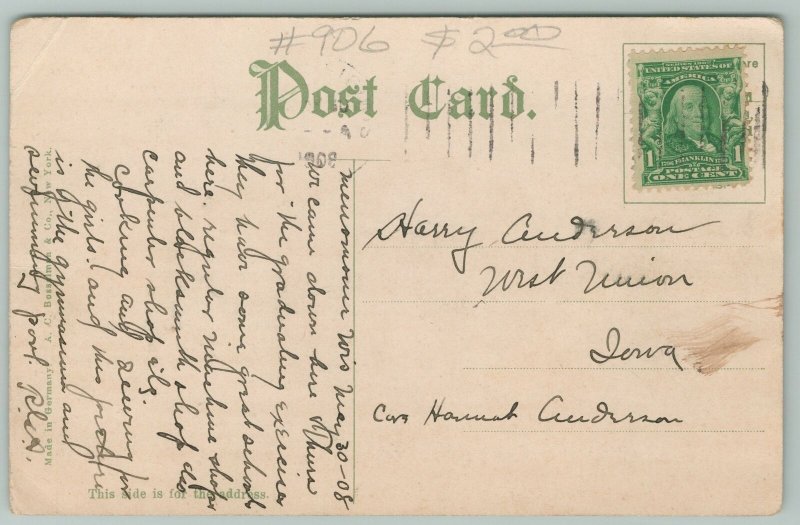 #906 $2.00
Post Card.
SERIES 1902
UNITED STATES OF
AMERICA
1 1706 FRANKLIN 1790 1
POSTAGE
ONE CENT
Harry Anderson
West Union
Iowa
Care Hannah Anderson
Menomonie Wis May 30-08
We came down here Thurs
for the graduating exercises
they have some great schools
here. regular machine shops
and blacksmith shop also
carpenter shop etc
cooking and sewing for
the girls. and this picture
is of the gymnasium and
swimming pool.
This side is for the address.
Made in Germany. A. C. Bosselman & Co., New York.